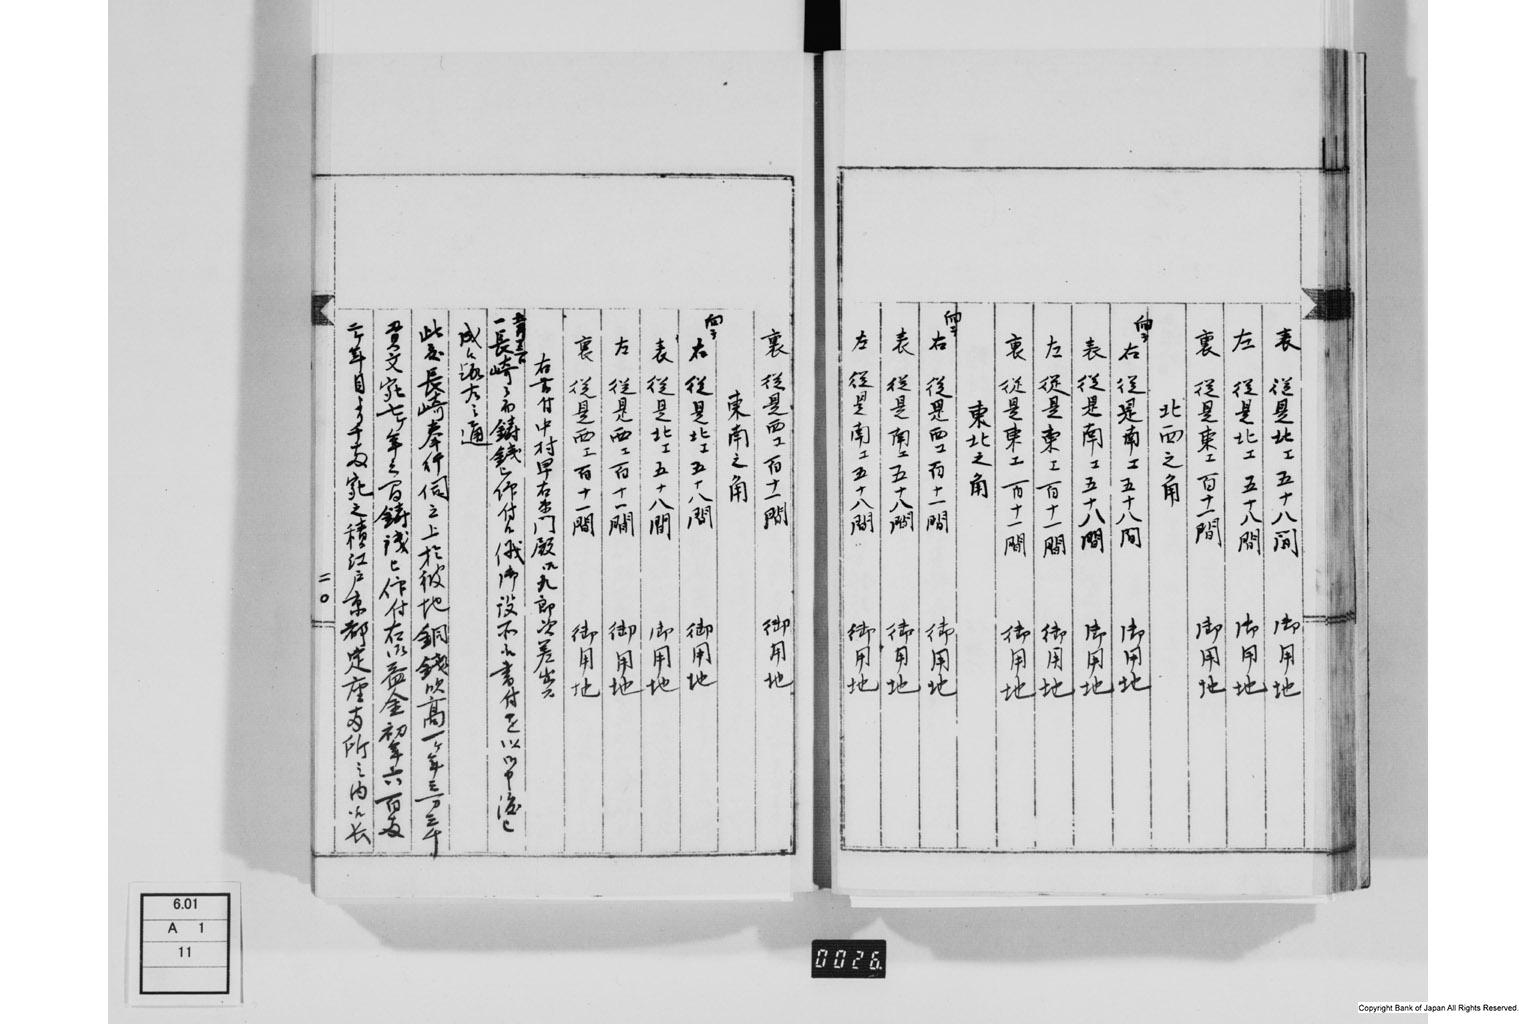 表 従是北江五十八間 御用地
左 従是北江五十八間 御用地
裏 従是東江百十一間 御用地
北西之角
向テ右 従是南江五十八間 御用地
表 従是南江五十八間 御用地
左 従是東江百十一間 御用地
裏 従是東江百十一間 御用地
東北之角
向テ右 従是西江百十一間 御用地
表 従是南江五十八間 御用地
左 従是南江五十八間 御用地
裏 従是西江百十一間 御用地
東南之角
向テ右 従是北江五十八間 御用地
表 従是北江五十八間 御用地
左 従是西江百十一間 御用地
裏 従是西江百十一間 御用地
右書付中村早右衛門殿江九郎次差出ス
一長崎ニ而鋳銭被仰付候儀御役所江書付を以申渡
成候
此度長崎奉行伺之上於彼地銅銭吹高一ケ年三万三千
貫文宛七ケ年之間鋳銭被仰付右御益金初年六百両
二ケ年目より千両宛之積江戸京都定座両所之内江長
二〇
6.01
A 1
11
0026
Copyright Bank of Japan All Rights Reserved.